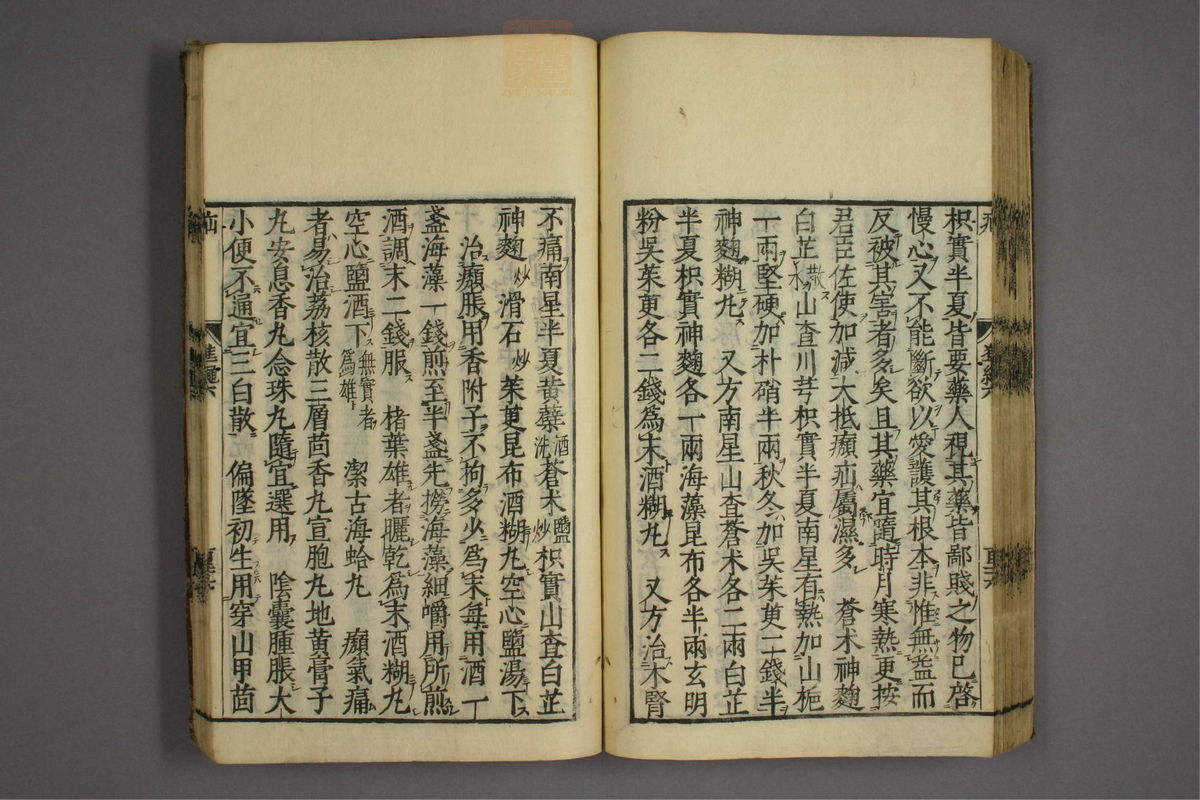 枳實半夏皆要藥人視其藥皆鄙賤之物已啓
慢心又不能斷欲以愛護其根本非惟無益而
反被其害者多矣且其藥宜隨時月寒熱更按
君臣佐使加減大抵癩疝屬濕多 蒼朮神麴
白芷散水山查川芎枳實半夏南星有熱加山梔
一兩堅硬加朴硝半兩秋冬加吳茱萸二錢半
神麴糊丸 又方南星山查蒼朮各二兩白芷
半夏枳實神麴各一兩海藻昆布各半兩玄明
粉吳茱萸各二錢爲末酒糊丸 又方治木腎
不痛南星半夏黃蘗酒洗蒼朮鹽炒枳實山查白芷
神麴炒滑石炒茱萸昆布酒糊丸空心鹽湯下
治癩脹用香附子不拘多少爲末每用酒一
盞海藻一錢煎至半盞先撈海藻細嚼用所煎
酒調末二錢服 楮葉雄者曬乾爲末酒糊丸
空心鹽酒下無實者爲雄 潔古海蛤丸 癩氣痛
者易治荔核散三層茴香丸宣胞丸地黃膏子
丸安息香丸念珠丸隨宜選用 陰囊腫脹大
小便不通宜三白散 偏墜初生用穿山甲茴